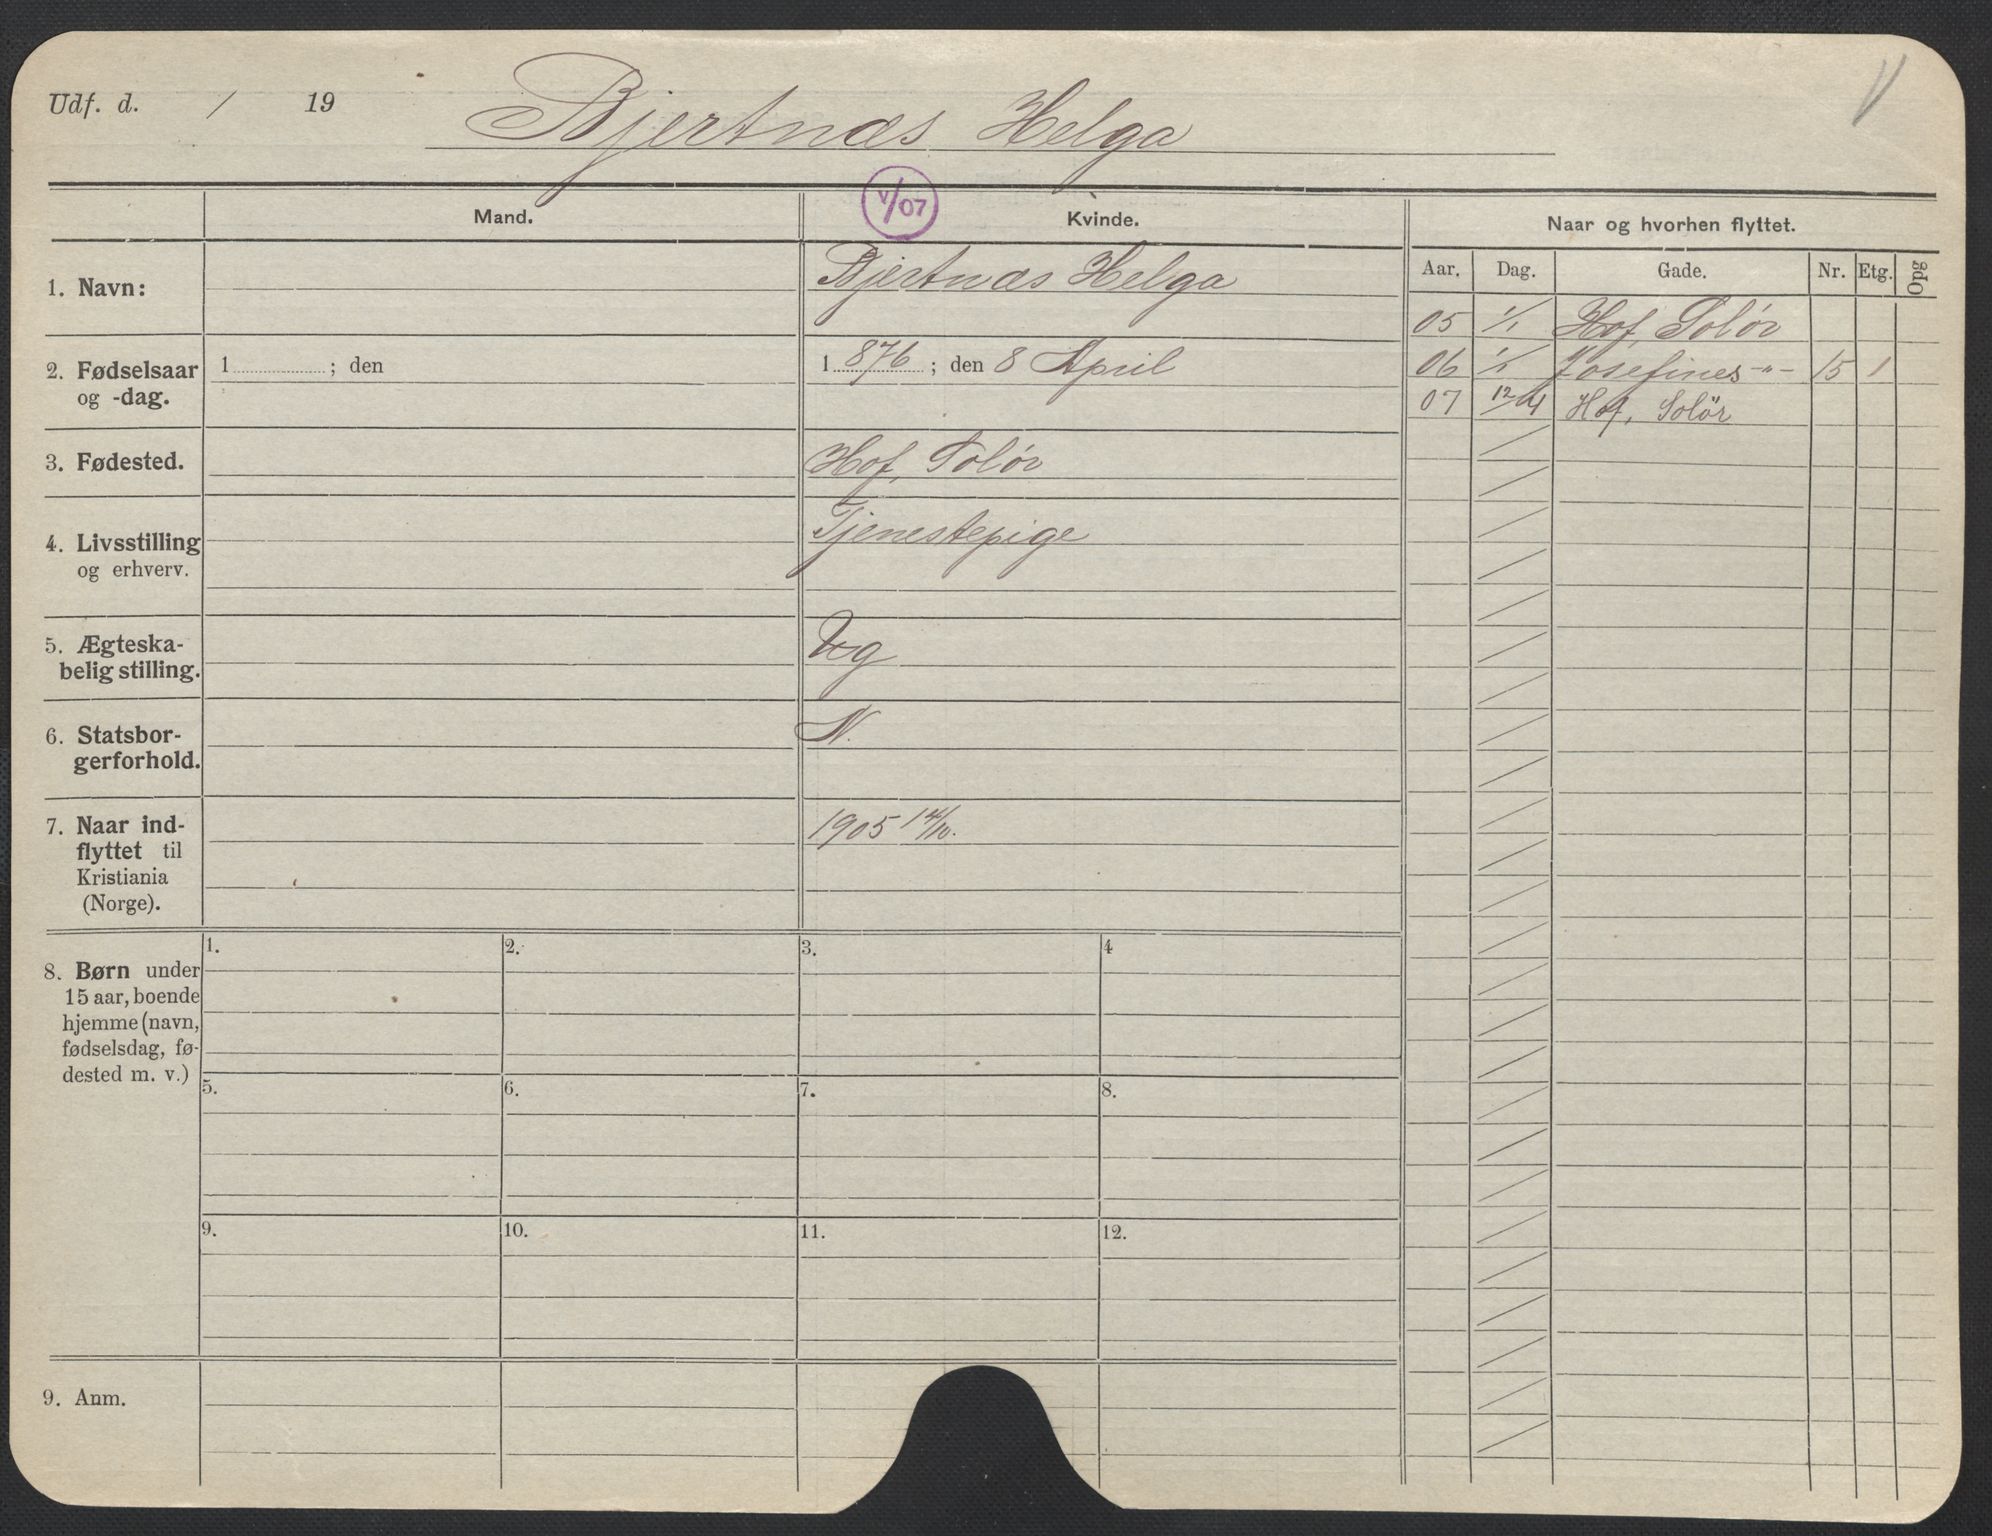 Udf. d. / 19 Bjertnæs Helga V
V/07
Mand. Kvinde. Naar og hvorhen flyttet.
Aar. Dag. Gade. Nr. Etg. Opg
1. Navn: Bjertnæs Helga
05 1/1 Hof, Solør
06 1/1 Josefines -"- 15 1
07 12/4 Hof, Solör
2. Fødselsaar 1 ; den 1 876 ; den 8 April
og -dag.
3. Fødested. Hof, Solør
4. Livsstilling Tjenestepige
og erhverv.
5. Ægteska-
belig stilling. Ug
6. Statsbor- N.
gerforhold.
7. Naar ind- 1905 14/10.
flyttet til
Kristiania
(Norge).
8. Børn under
15 aar, boende
hjemme (navn,
fødselsdag, fø-
dested m. v.)
1. 2. 3. 4
5. 6. 7. 8.
9. 10. 11. 12.
9. Anm.